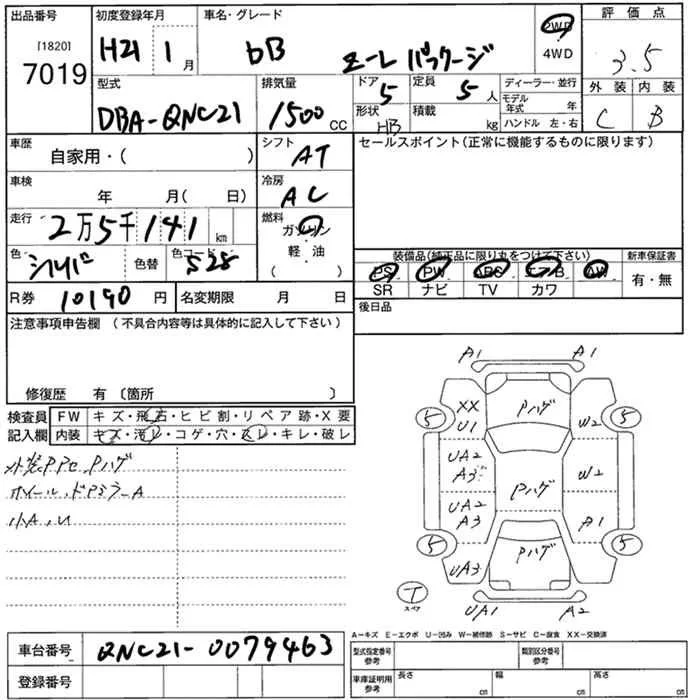 出品番号 初度登録年月 車名・グレード 評価点
[1820] 7019 H21 1月 bB Z-L パッケージ 2WD 4WD 3.5
型式 排気量 ドア 定員 ディーラー・並行 外装 内装
DBA-QNC21 1500CC 5 5人 モデル年式 年 C B
形状 HB 積載 kg ハンドル 左・右
車歴 自家用・( ) シフト AT セールスポイント(正常に機能するものに限ります)
車検 年 月( 日) 冷房 AC
走行 2万5千141km 燃料 ガソリン・軽油
色 シルバー 色替 色コード S28 ( )
装備品(純正品に限り丸をつけて下さい) 新車保証書
PS PW ABS エアB AW 有・無
SR ナビ TV カワ
R券 10190円 名変期限 月 日 後日品
注意事項申告欄(不具合内容等は具体的に記入して下さい)
修復歴 有〔箇所 〕
検査員記入欄 FW キズ・飛石・ヒビ割・リペア跡・X要
内装 キズ・汚レ・コゲ・穴・スレ・キレ・破レ
Pハゲ
ホイール、ドアミラーA
小A、U
A1 A1
XX U1 Pハゲ
5 5 W2
UA2 A3 Pハゲ W2
UA2 A3 A1
5 5
UA3 Pハゲ
T スペア UA1 A2
A-キズ E-エクボ U-凹み W-補修跡 S-サビ C-腐食 XX-交換済
車台番号 QNC21-0079463
登録番号
型式指定番号 参考 類別区分番号 参考
車庫証明用 参考 長さ cm 幅 cm 高さ cm